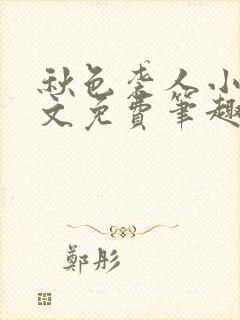 秋色袭人小
文免費筆趣
鄭彤